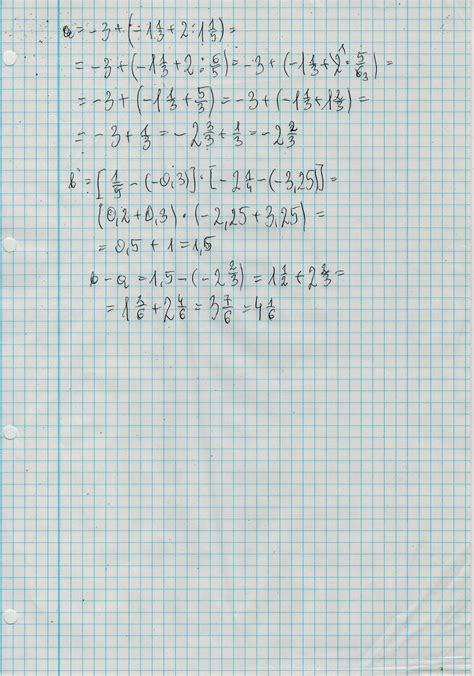 a = -3 + (-1 1/3 + 2 : 1 1/5) =
= -3 + (-1 1/3 + 2 : 6/5) = -3 + (-1 1/3 + 2̸¹ · 5/6̸₃) =
= -3 + (-1 1/3 + 5/3) = -3 + (-1 1/3 + 1 2/3) =
= -3 + 1/3 = -2 3/3 + 1/3 = -2 2/3
b = [1/5 - (-0,3)] · [-2 1/4 - (-3,25)] =
(0,2 + 0,3) · (-2,25 + 3,25) =
= 0,5 + 1 = 1,5
b - a = 1,5 - (-2 2/3) = 1 1/2 + 2 2/3 =
= 1 3/6 + 2 4/6 = 3 7/6 = 4 1/6